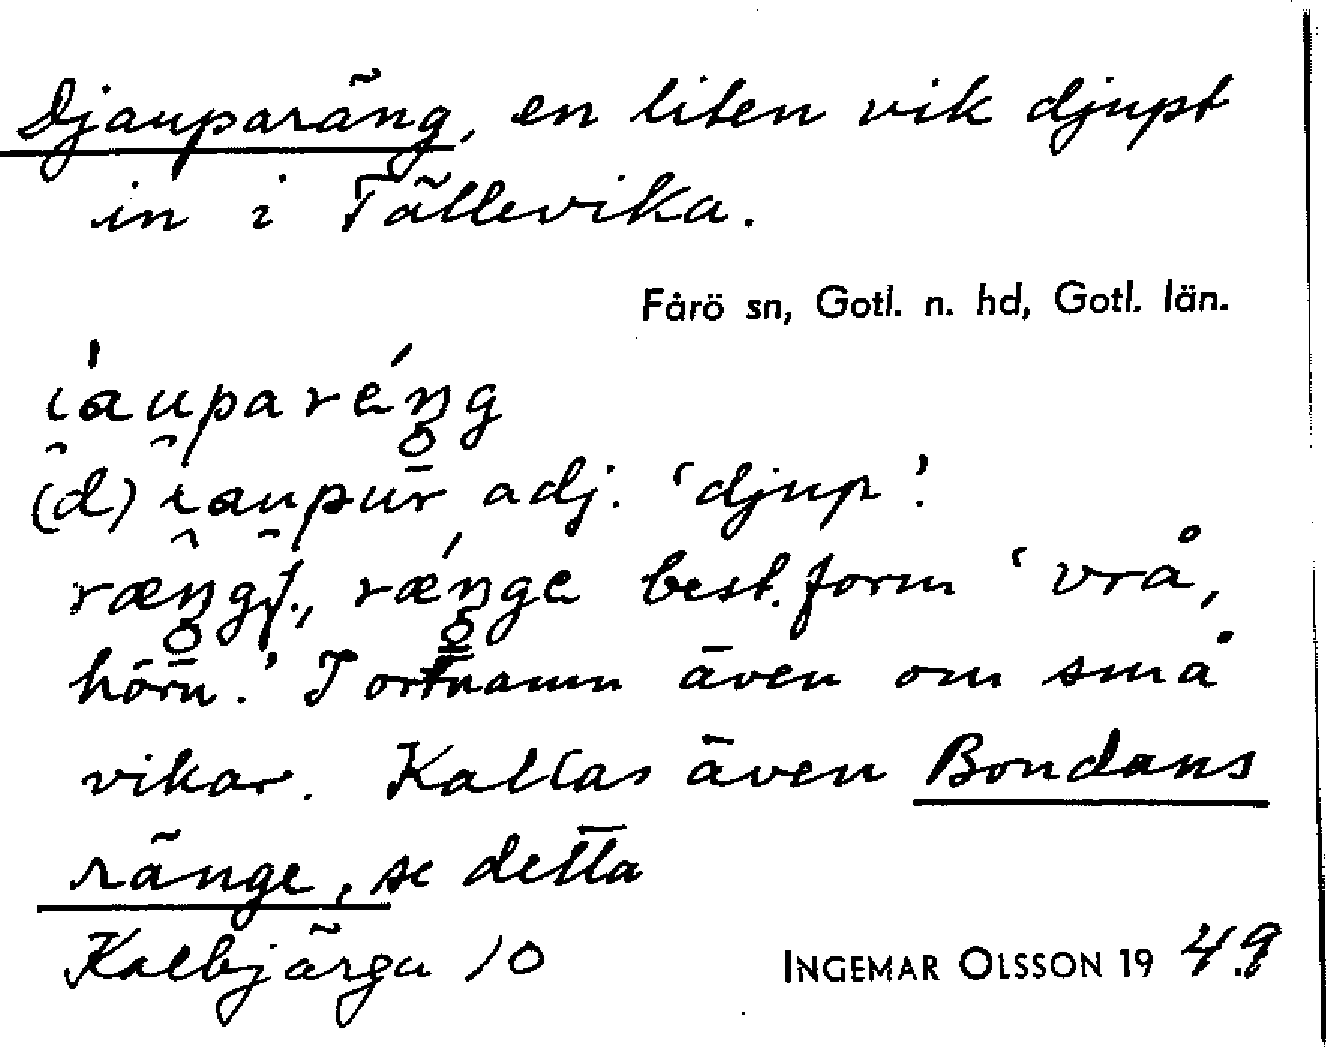 Djauparäng, en liten vik djupt
in i Tällevika.
Fårö sn, Gotl. n. hd, Gotl. län.
i̯àuparéŋg
(d) i̯aupur adj. 'djup'.
ræŋg f., rǽŋge best. form 'vrå,
hörn.' I ortnamn även om små
vikar. Kallas även Bondans
ränge, se detta
Kalbjärga 10
INGEMAR OLSSON 1949